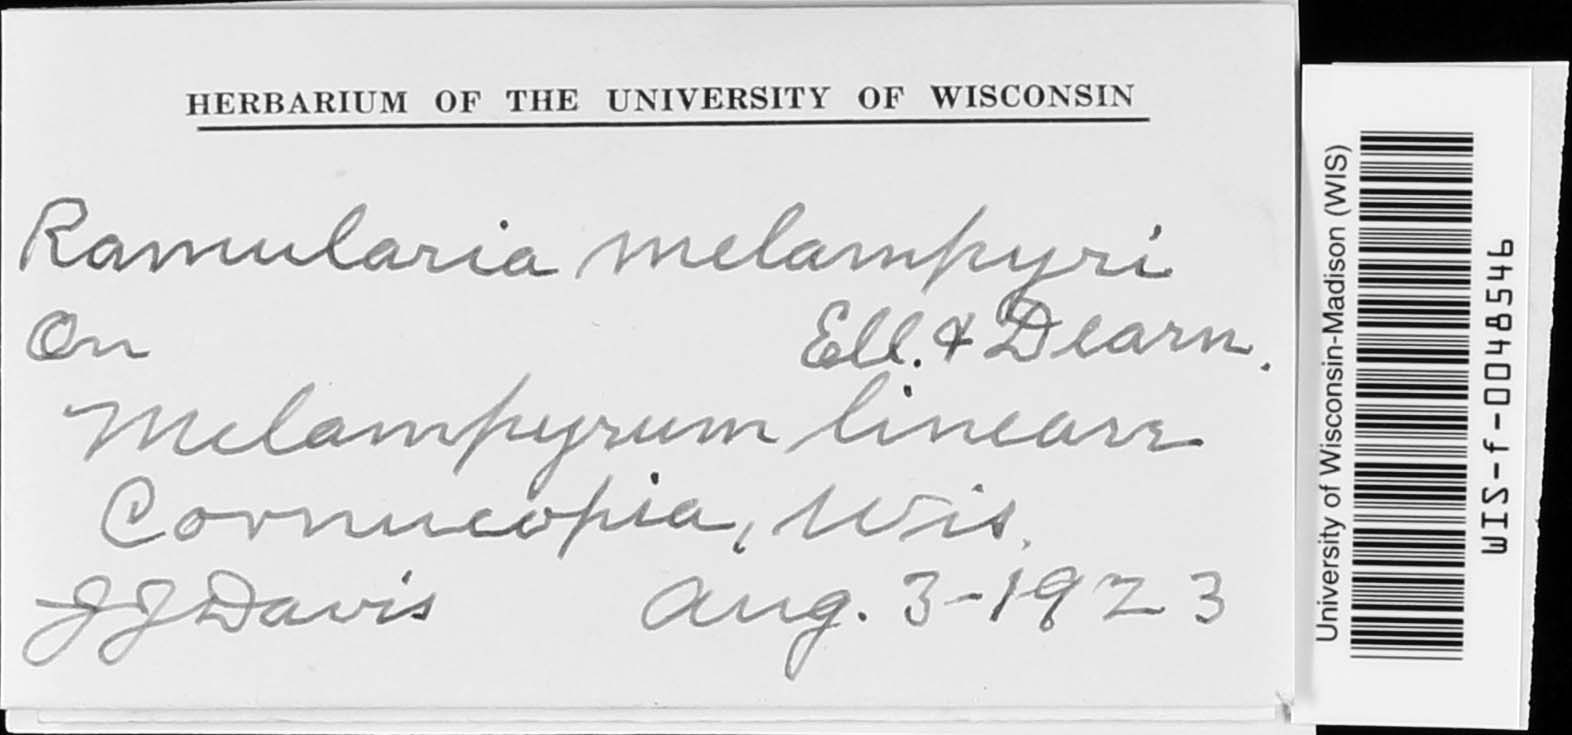 HERBARIUM OF THE UNIVERSITY OF WISCONSIN
Ramularia melampyri
On Ell. & Dearn.
Melampyrum lineare
Cornucopia, Wis.
JJ Davis Aug. 3-1923
University of Wisconsin-Madison (WIS)
WIS-f-0048546